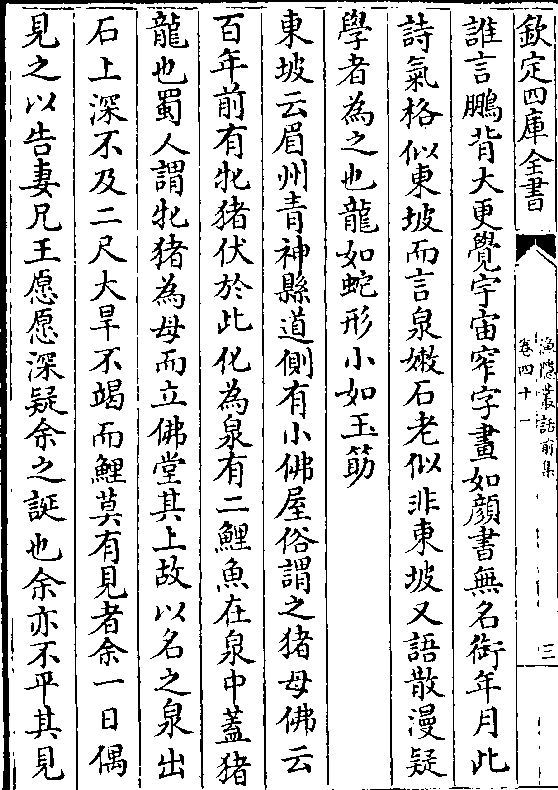 欽定四庫全書
漁隱叢話前集
卷四十一
三
誰言鵬背大更覺宇宙窄字畫如顔書無名銜年月此
詩氣格似東坡而言泉嫩石老似非東坡又語散漫疑
學者為之也龍如蛇形小如玉筯
東坡云眉州青神縣道側有小佛屋俗謂之猪母佛云
百年前有牝猪伏於此化為泉有二鯉魚在泉中蓋猪
龍也蜀人謂牝猪為母而立佛堂其上故以名之泉出
石上深不及二尺大旱不竭而鯉莫有見者余一日偶
見之以告妻兄王愿愿深疑余之誕也余亦不平其見